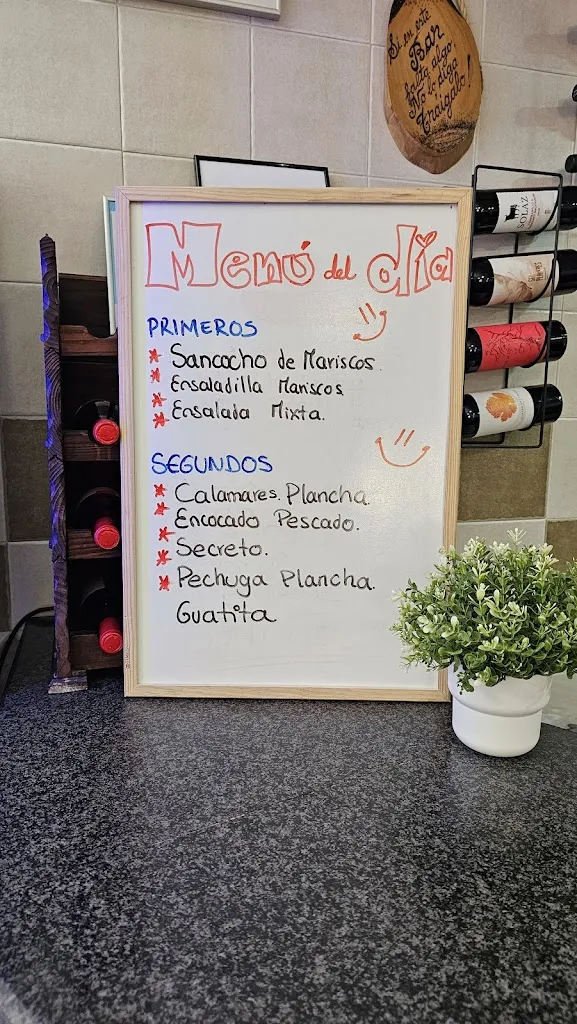 Si en este
Bar
falta algo
No lo diga
Traigalo!
Menú del día
PRIMEROS
* Sancocho de Mariscos.
* Ensaladilla Mariscos
* Ensalada Mixta.
*
SEGUNDOS
* Calamares. Plancha.
* Encocado Pescado.
* Secreto.
* Pechuga Plancha.
* Guatita